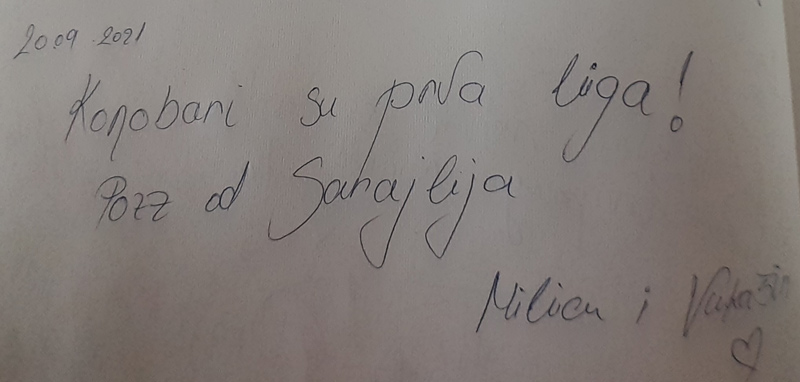 20.09.2021
Konobari su prva liga!
Pozz od Sarajlija
Milica i Vukašin